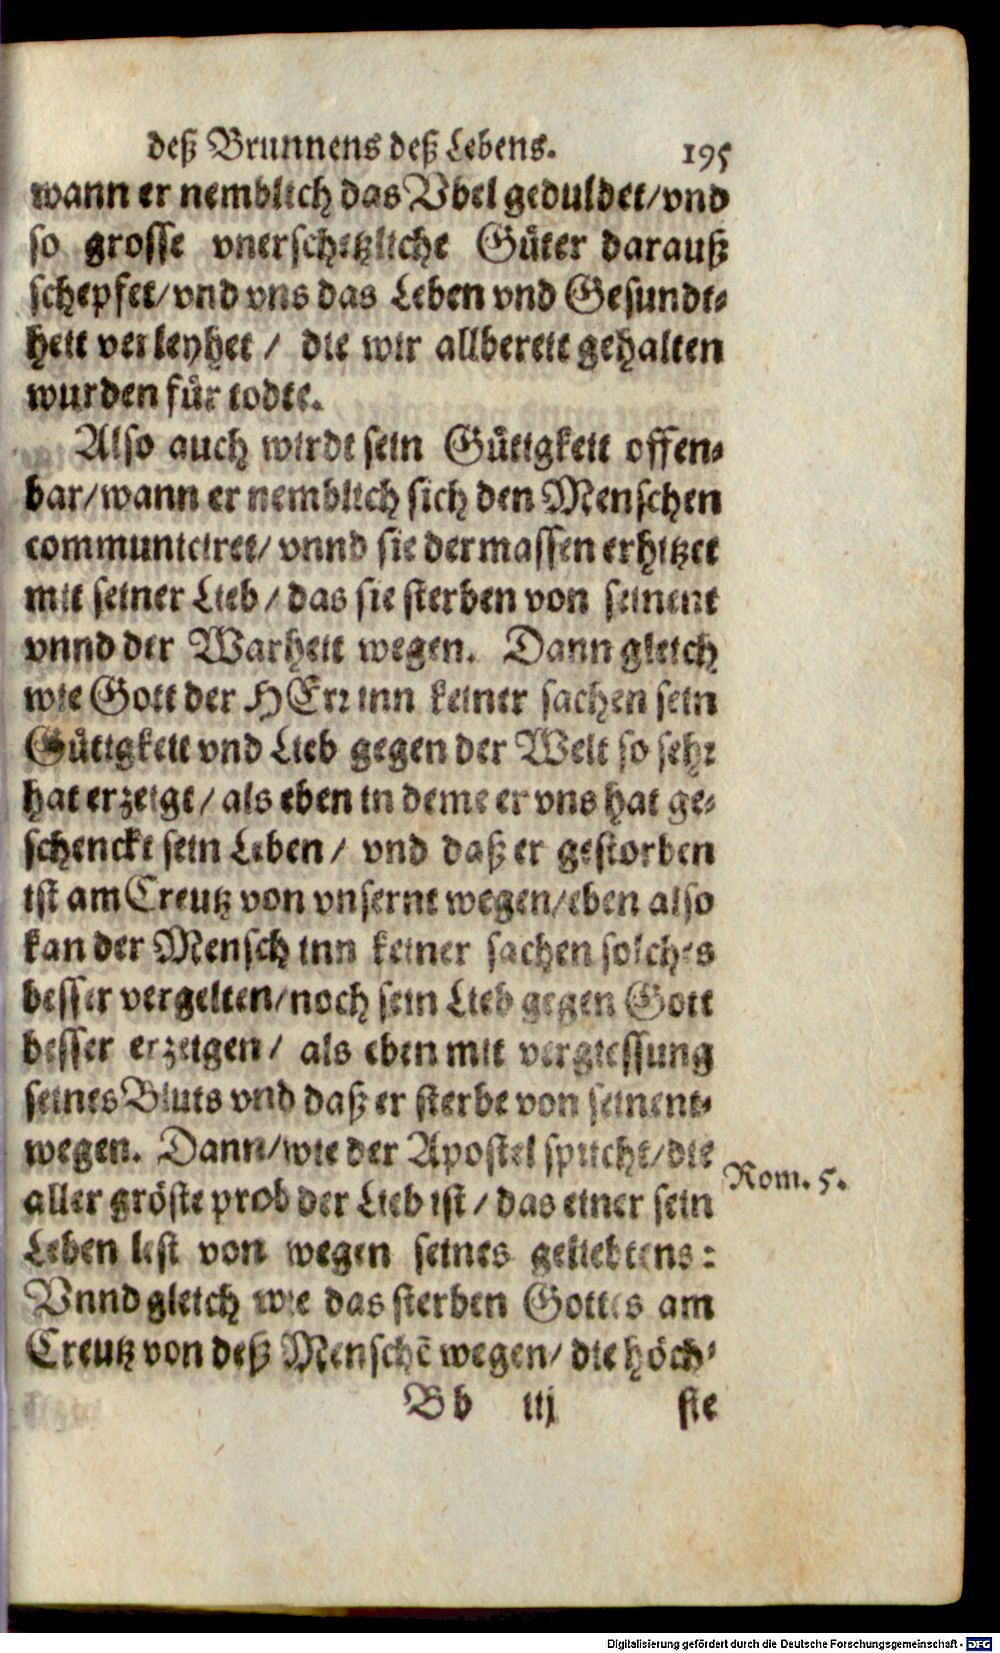 deß Brunnens deß Lebens. 195
wann er nemblich das Vbel geduldet/vnd
so grosse vnerschetzliche Gůter darauß
schepfet/vnd vns das Leben vnd Gesundt-
heit verleyhet / die wir allbereit gehalten
wurden fůr todte.
Also auch wirdt sein Gůtigkeit offen-
bar/wann er nemblich sich den Menschen
communiciret/ vnnd sie dermassen erhitzet
mit seiner Lieb / das sie sterben von seinent
vnnd der Warheit wegen. Dann gleich
wie Gott der HErr inn keiner sachen sein
Gůtigkeit vnd Lieb gegen der Welt so sehr
hat erzeigt / als eben in deme er vns hat ge-
schenckt sein Leben / vnd daß er gestorben
ist am Creutz von vnsernt wegen/eben also
kan der Mensch inn keiner sachen solches
besser vergelten/noch sein Lieb gegen Gott
besser erzeigen / als eben mit vergiessung
seines Bluts vnd daß er sterbe von seinent-
wegen. Dann/wie der Apostel spricht/die
Rom. 5.
aller gröste prob der Lieb ist / das einer sein
Leben lest von wegen seines geliebtens:
Vnnd gleich wie das sterben Gottes am
Creutz von deß Menschē wegen/ die höch-
Bb iij ste
Digitalisierung gefördert durch die Deutsche Forschungsgemeinschaft - DFG